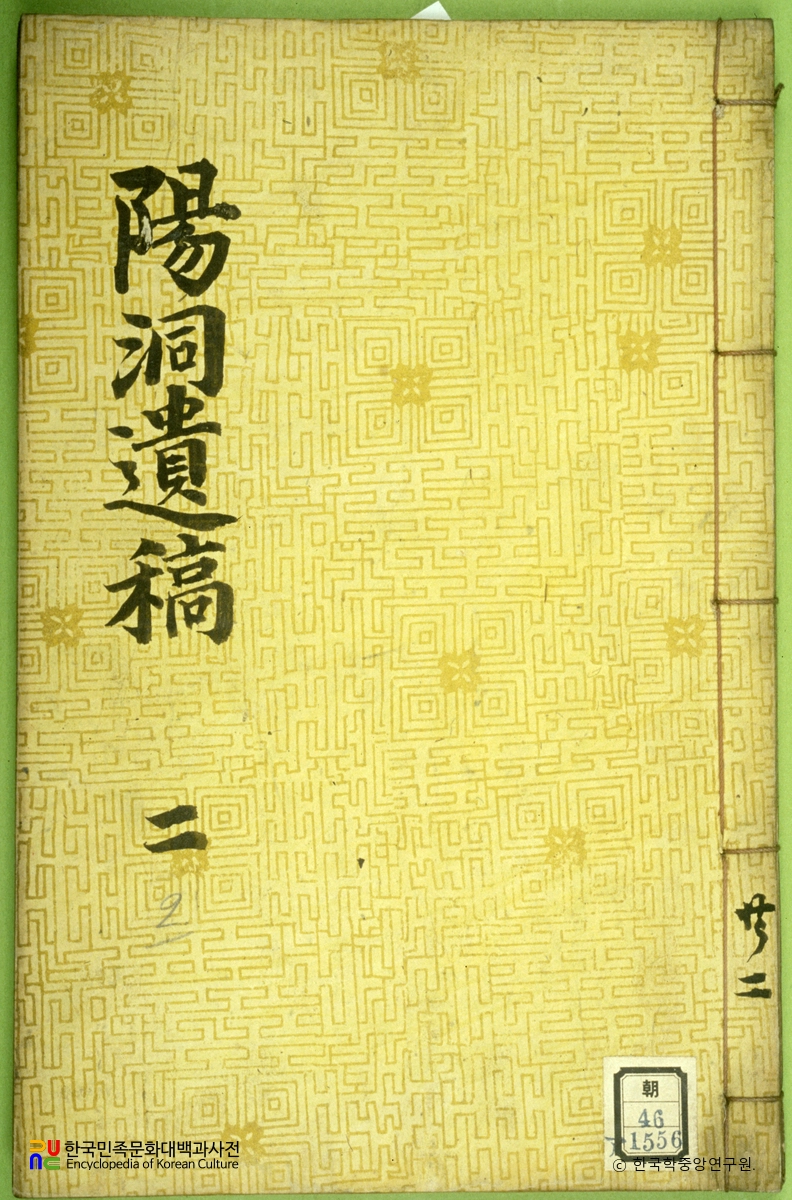 陽洞遺稿 二
2
共二
朝
46
1556
한국민족문화대백과사전
Encyclopedia of Korean Culture
ⓒ 한국학중앙연구원.